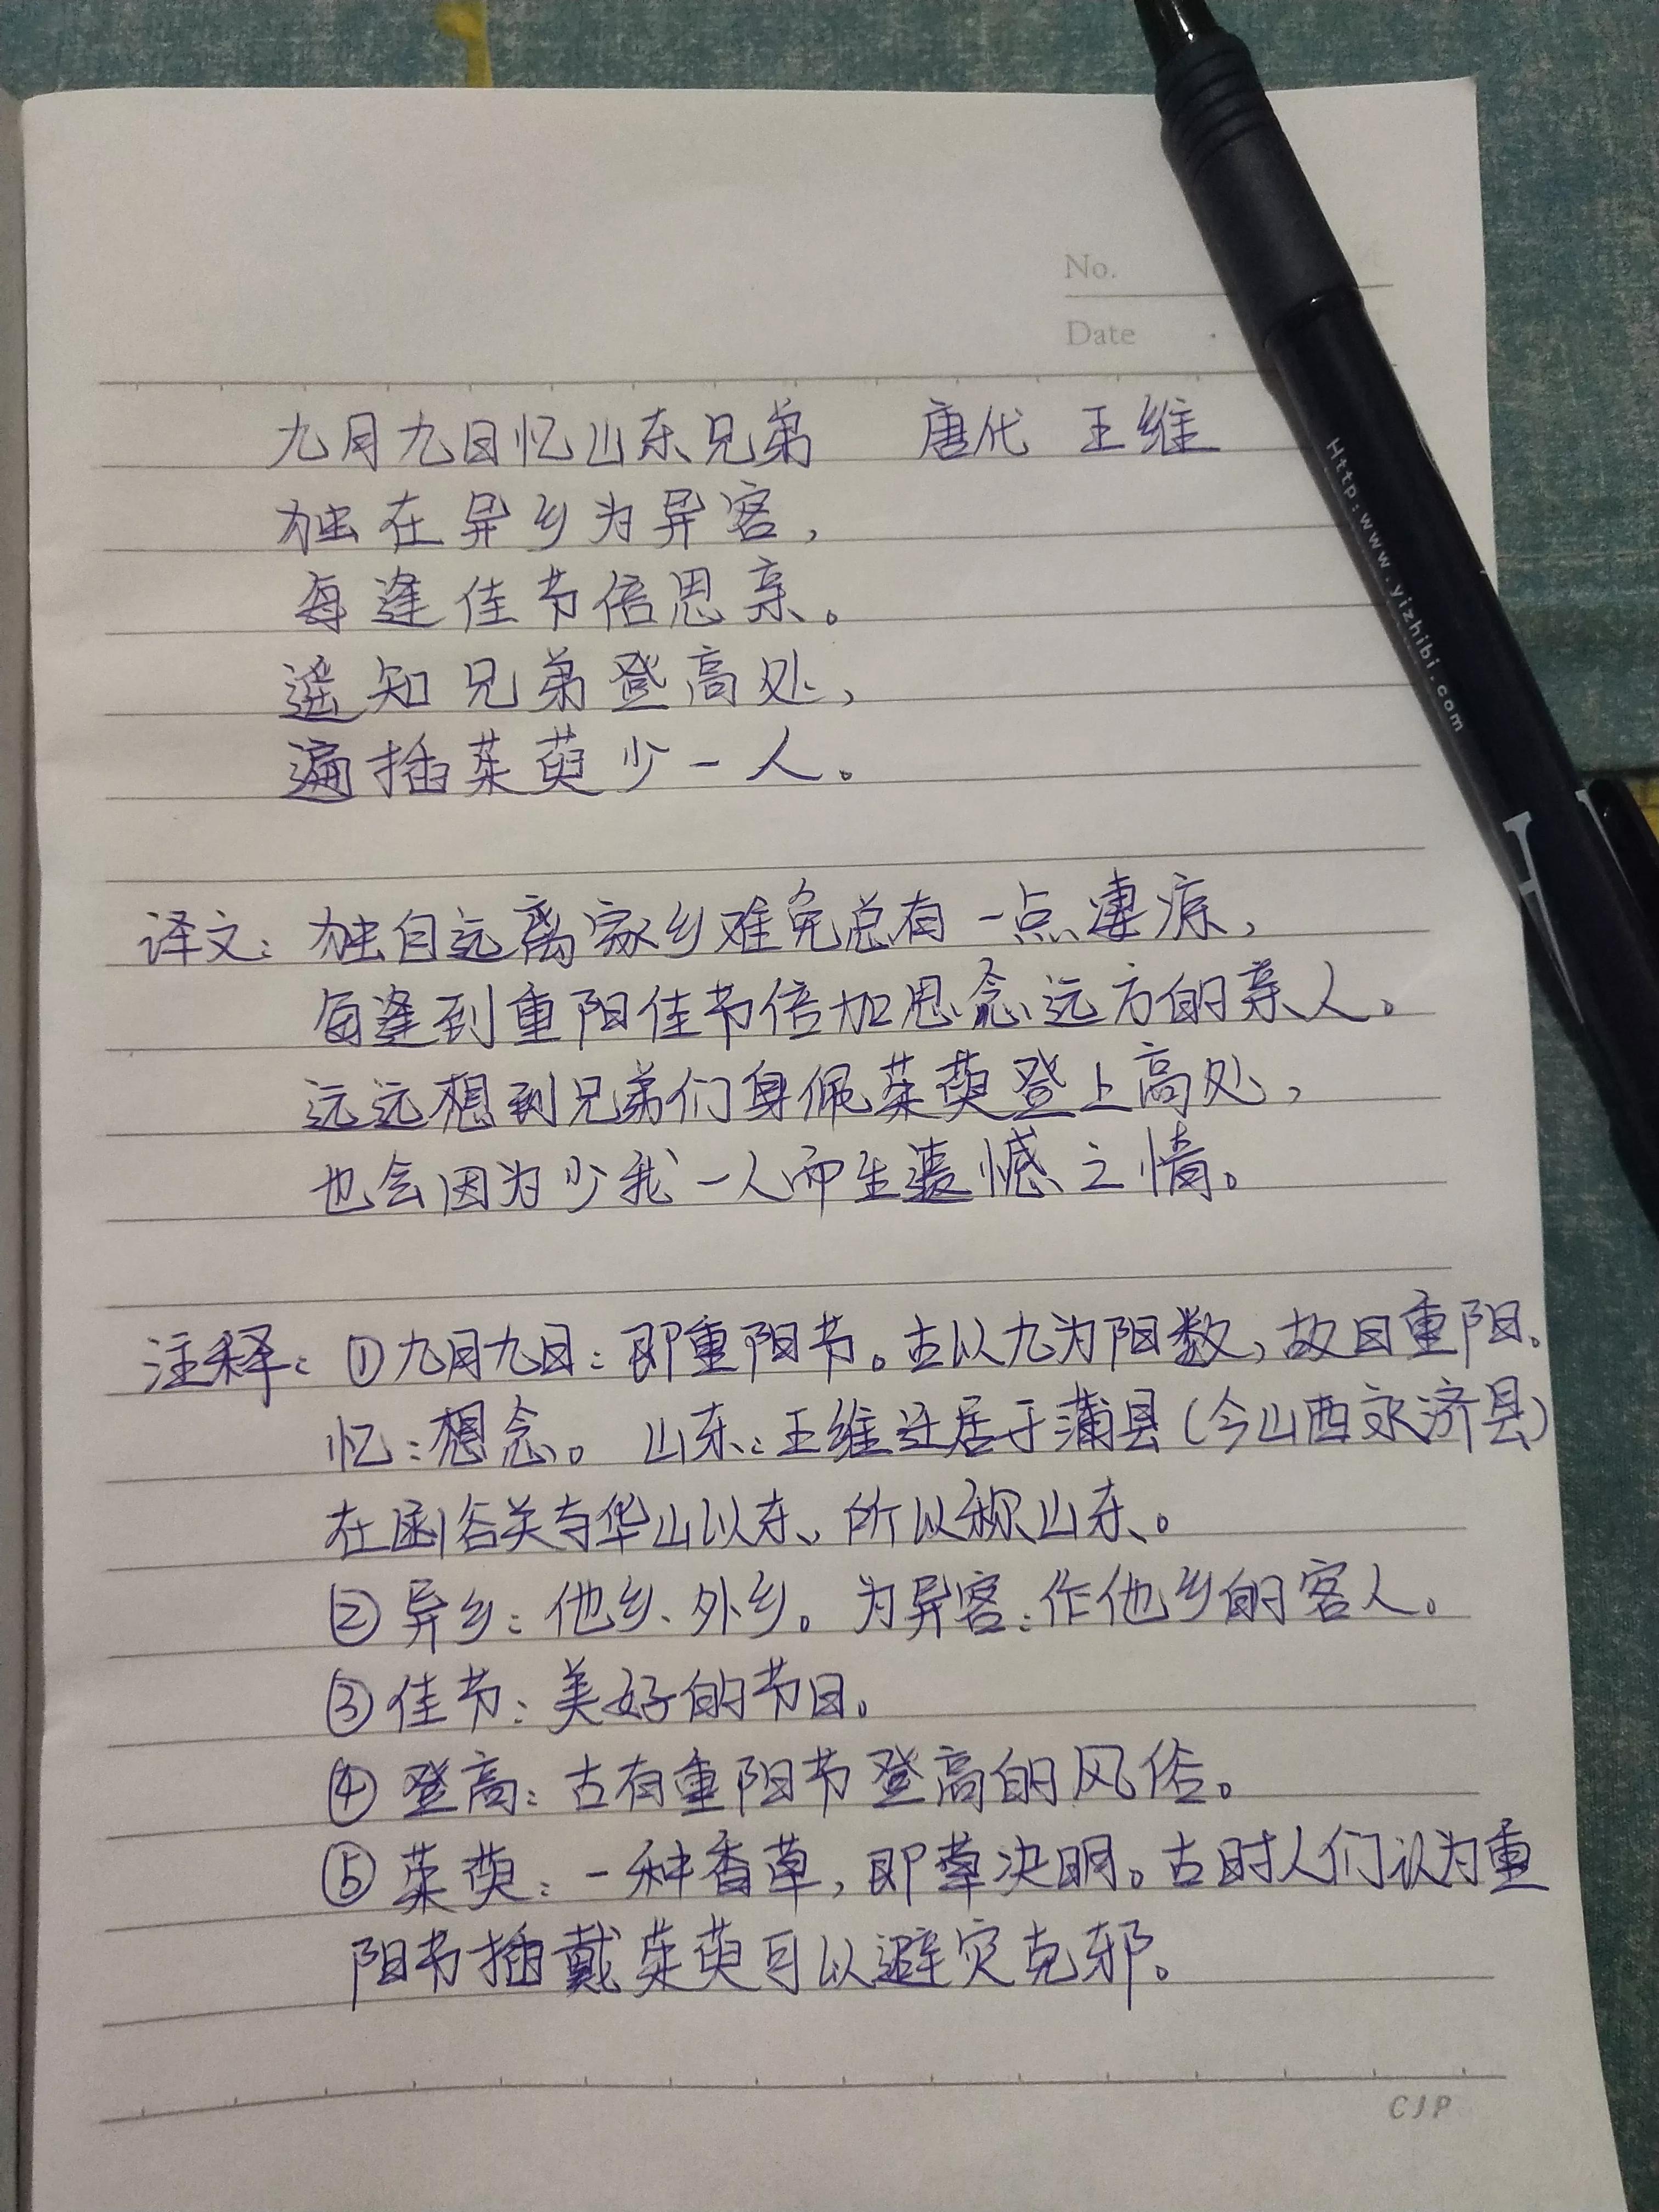 No.
Date
九月九日忆山东兄弟 唐代 王维
独在异乡为异客,
每逢佳节倍思亲。
遥知兄弟登高处,
遍插茱萸少一人。
译文: 独自远离家乡难免总有一点凄凉,
每逢到重阳佳节倍加思念远方的亲人。
远远想到兄弟们身佩茱萸登上高处,
也会因为少我一人而生遗憾之情。
注释: ①九月九日: 即重阳节。古以九为阳数, 故曰重阳。
忆: 想念。 山东: 王维迁居于蒲县(今山西永济县)
在函谷关与华山以东, 所以称山东。
②异乡: 他乡、外乡。为异客: 作他乡的客人。
③佳节: 美好的节日。
④登高: 古有重阳节登高的风俗。
⑤茱萸: 一种香草, 即草决明。古时人们认为重
阳节插戴茱萸可以避灾克邪。
CJP
Http:www.yizhibi.com